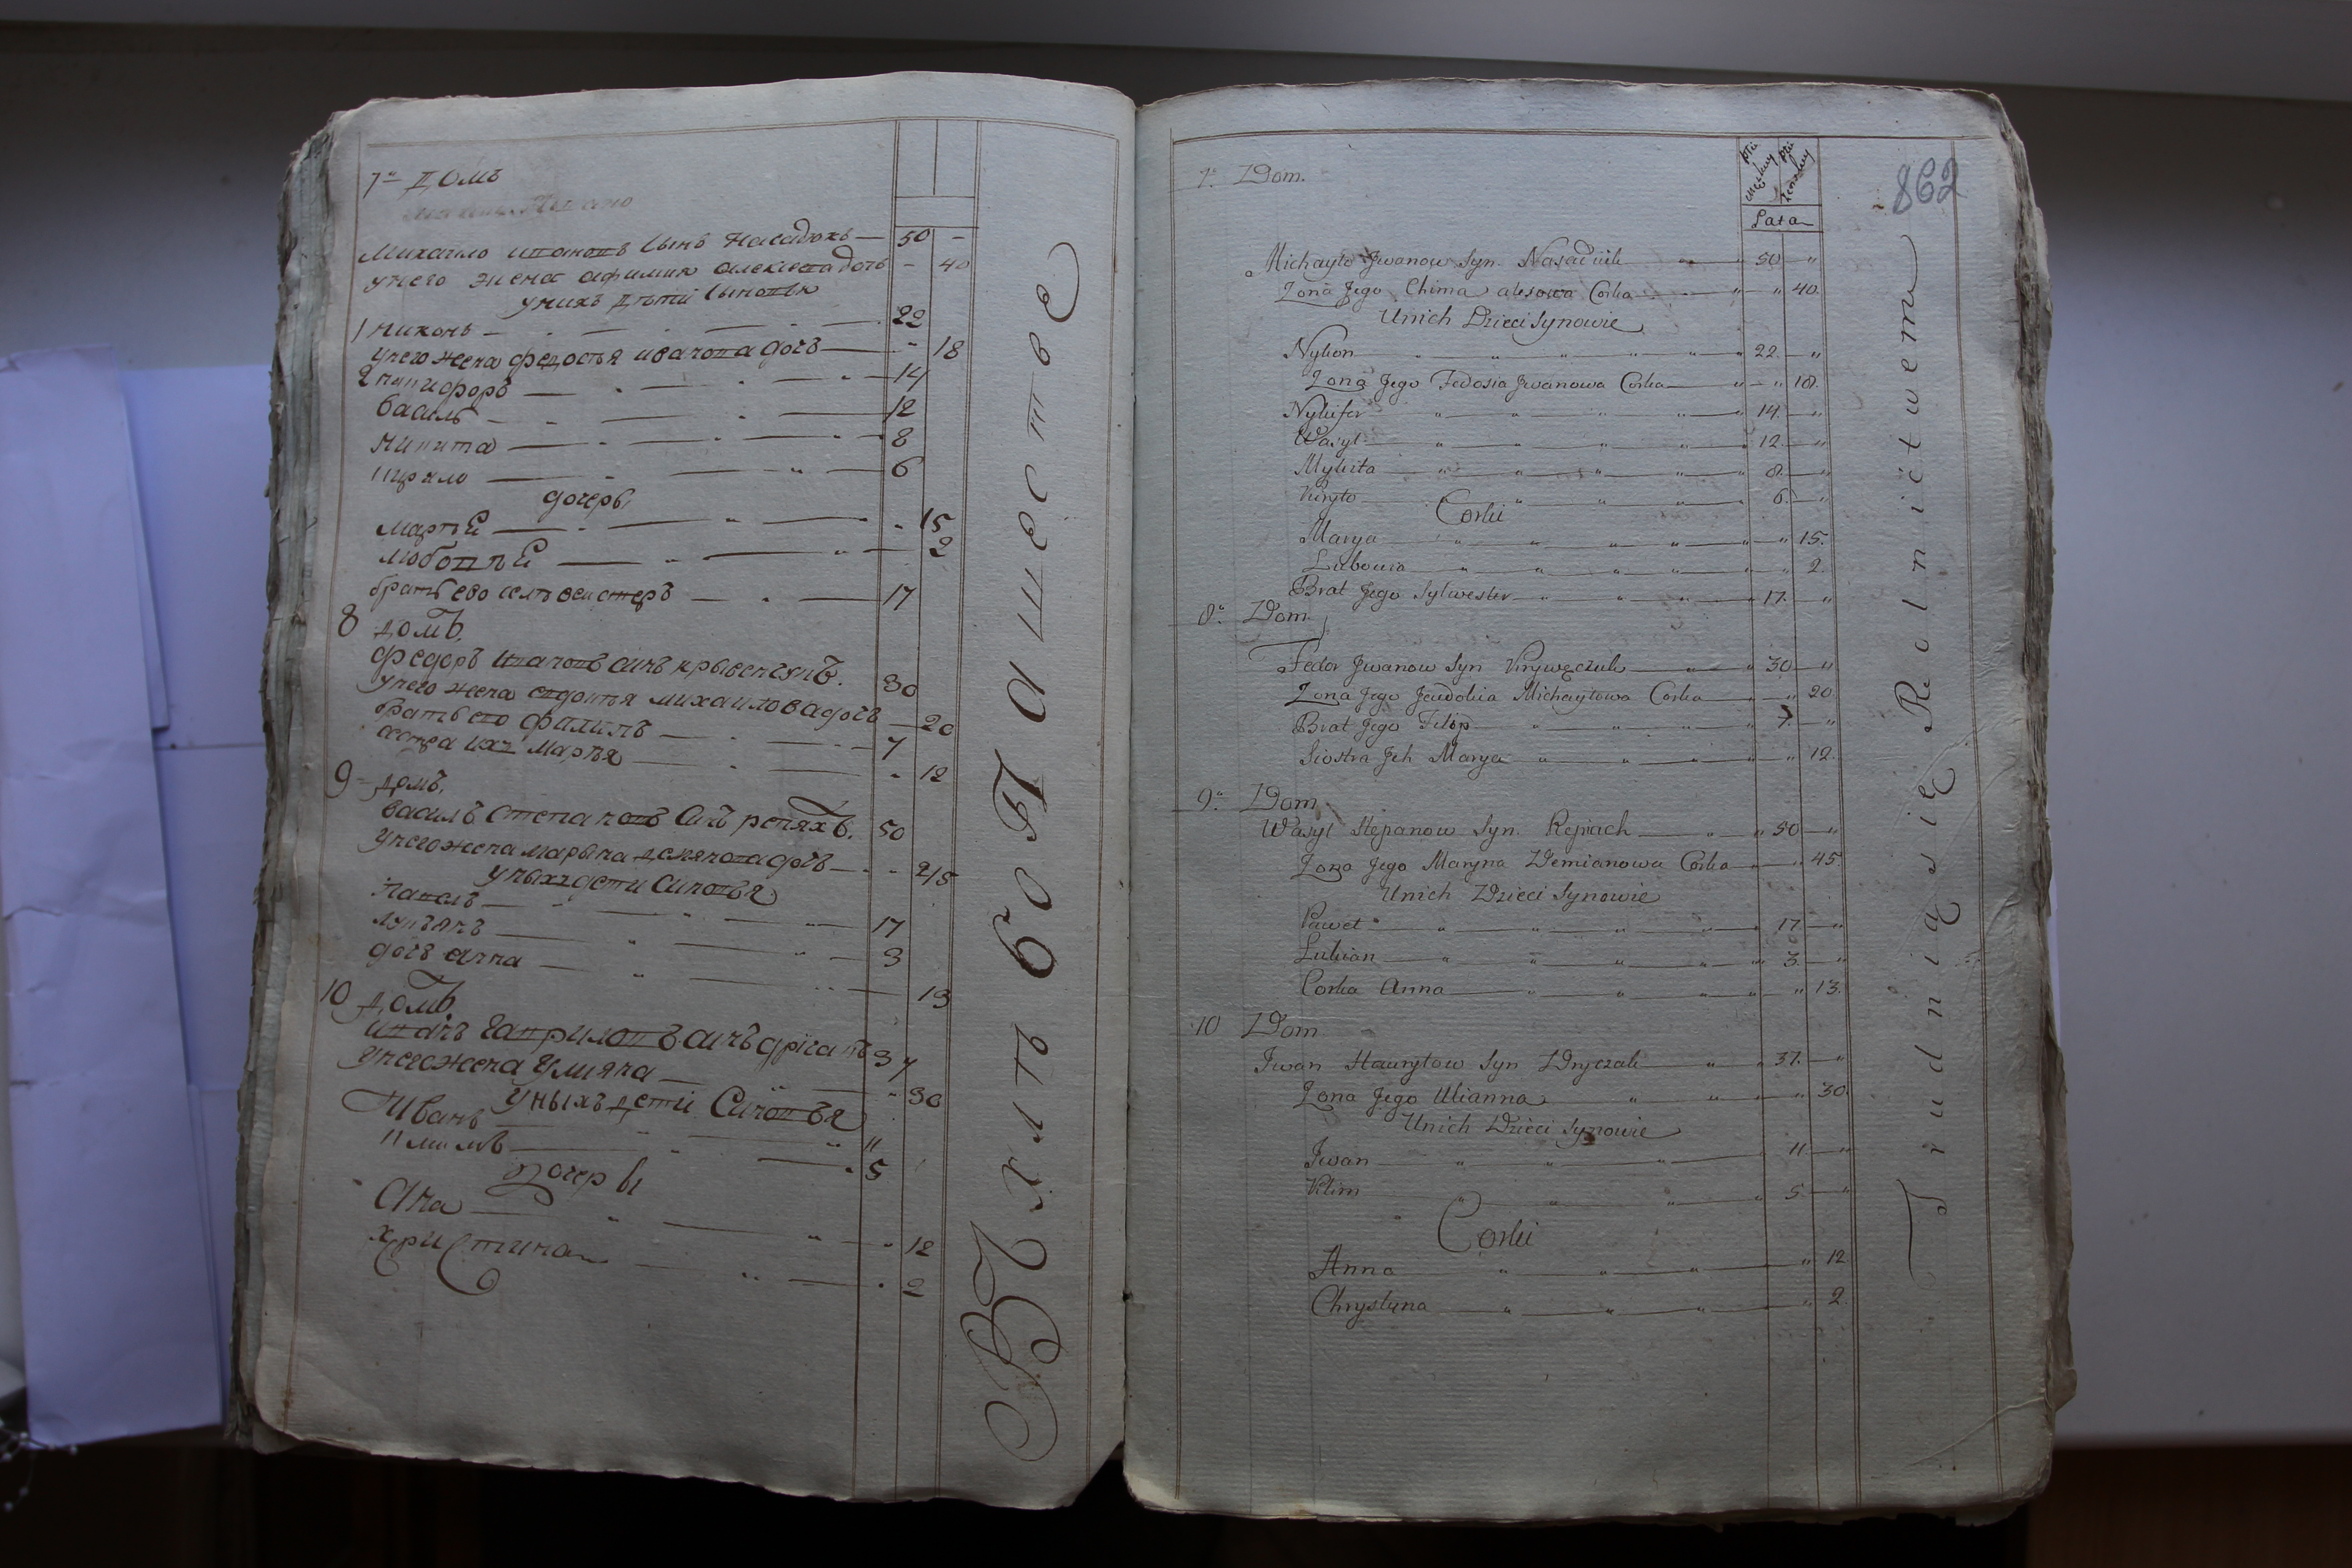 7" Домъ
Михайло ивановъ сынъ Насадюкъ — 50 -
у него жена афимия алексеева дочь - 40
у нихъ дети сыновья
1 никонъ — 22
у него жена федостья иванова дочъ — " 18
2 никифоръ — 14
василь — 12
никита — 8
кирило — 6
дочеры
маръя — " 15
любовъя — 2
братъ ево селвестеръ — 17
8 домъ.
федоръ ивановъ синъ крывенчукъ. 30
у него жена евдокия михаилова дочъ — 20
братъ его филипъ — 7
сестра ихъ маръя — " 12
9 домъ.
василъ степановъ синъ репяхъ. 50
у него жена марына демянова дочъ — 45
у ныхъ дети синовья
павелъ — 17
лукянъ — 3
дочъ анна — 13
10 домъ
иванъ гавриловъ синъ дричакъ 37
у него жена улияна — " 30
у ныхъ дети синовья
Иванъ — 11
климъ — 5
дочеры
Ана — 12
христина — 2
Въ хлебопашестве
862
płci męzkiey
płci żenskiey
Lata
7." Dom.
Michayło Jwanow Syn Nasadiuk — " 50 — "
Zona Jego Chima alexowa Corka — " " 40.
Unich Dzieci Synowie
Nykon " " " " " 22 — "
Zona Jego Fedosia Jwanowa Corka — " — " 18.
Nykifor " " " " 14. — "
Wasyl " " " " 12. — "
Mykita " " " " 8. — "
Kiryło " " " 6. — "
Corki
Marya " " " " " " 15.
Lubowia " " " " " " 2.
Brat Jego Sylwester " " " " 17. "
8." Dom.
Fedor Jwanow Syn Krywęczuk — " " 30 — "
Zona Jego Jewdokia Michayłowa Corka " — " 20
Brat Jego Filip " " " " 7. — "
Siostra Jch Marya " " " " " 12.
9." Dom
Wasyl Stepanow Syn. Repiach — " " 50 — "
Zona Jego Maryna Demianowa Corka " — " 45.
Unich Dzieci Synowie
Paweł " " " " " 17 — "
Lukian " " " " " 3. — "
Corka Anna " " " " " 13.
10 Dom
Jwan Hawryłow Syn Dryczak " " 37. — "
Zona Jego Ulianna " " " " 30.
Unich Dzieci Synowie
Jwan " " " 11 — "
Klim " " " " 5. — "
Corki
Anna " " " " 12
Chrystyna " " " " 2.
Trudnią się Rolnictwem